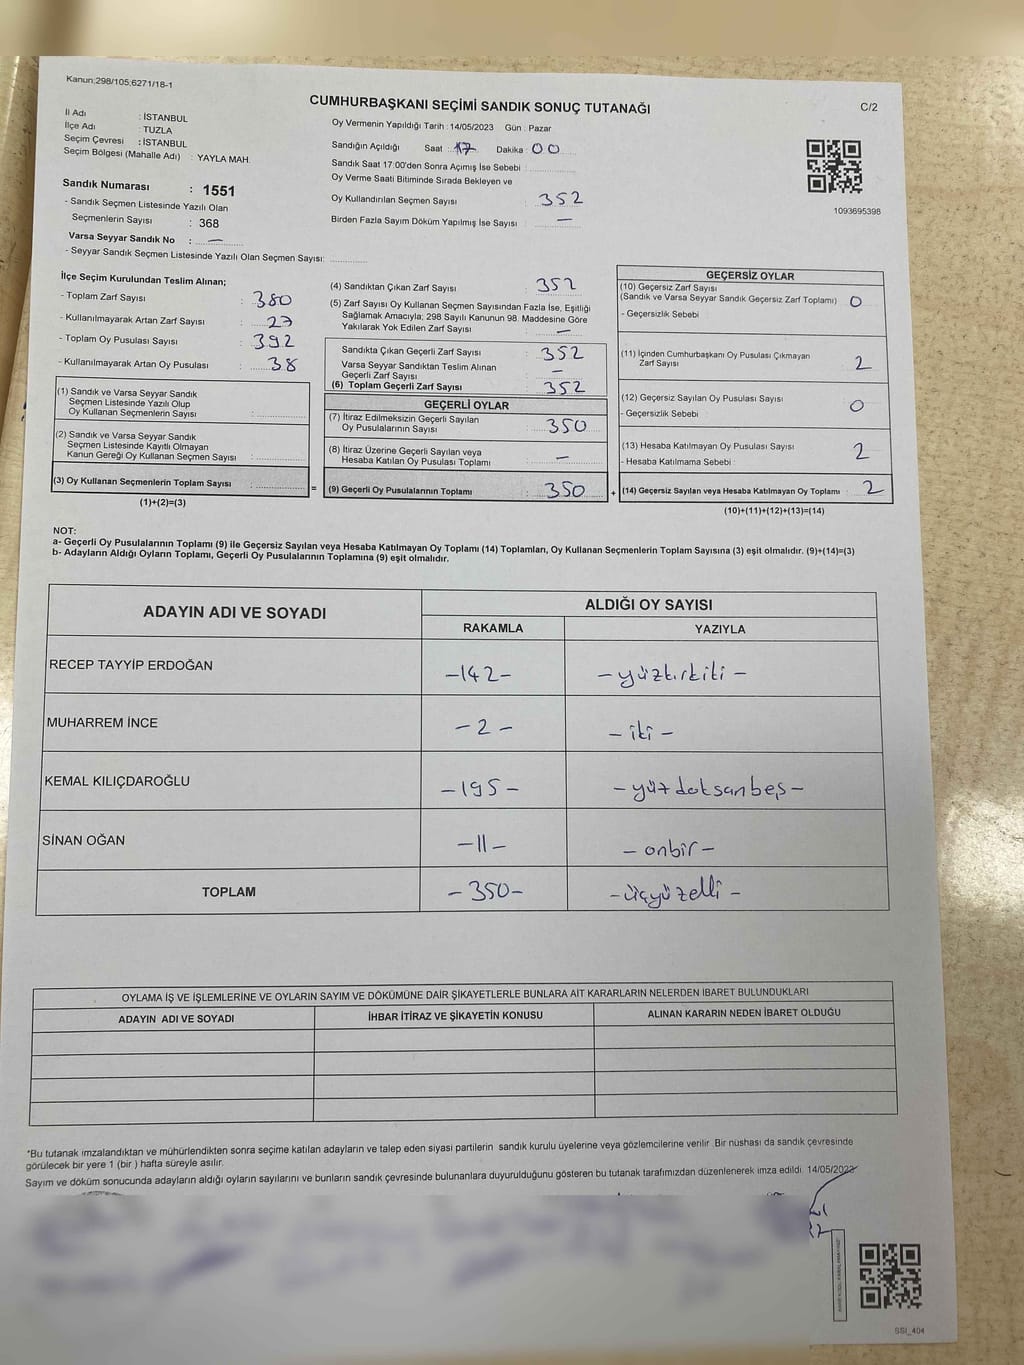 Kanun:298/105;6271/18-1
CUMHURBAŞKANI SEÇİMİ SANDIK SONUÇ TUTANAĞI
C/2
İl Adı : İSTANBUL
İlçe Adı : TUZLA
Seçim Çevresi : İSTANBUL
Seçim Bölgesi (Mahalle Adı) : YAYLA MAH.
Sandık Numarası : 1551
- Sandık Seçmen Listesinde Yazılı Olan
Seçmenlerin Sayısı : 368
Varsa Seyyar Sandık No : —
- Seyyar Sandık Seçmen Listesinde Yazılı Olan Seçmen Sayısı:
Oy Vermenin Yapıldığı Tarih : 14/05/2023 Gün : Pazar
Sandığın Açıldığı Saat : 17 Dakika : 00
Sandık Saat 17:00'den Sonra Açımış İse Sebebi :
Oy Verme Saati Bitiminde Sırada Bekleyen ve
Oy Kullandırılan Seçmen Sayısı : 352
Birden Fazla Sayım Döküm Yapılmış İse Sayısı : —
1093695398
İlçe Seçim Kurulundan Teslim Alınan;
- Toplam Zarf Sayısı : 380
- Kullanılmayarak Artan Zarf Sayısı : 27
- Toplam Oy Pusulası Sayısı : 392
- Kullanılmayarak Artan Oy Pusulası : 38
(1) Sandık ve Varsa Seyyar Sandık
Seçmen Listesinde Yazılı Olup
Oy Kullanan Seçmenlerin Sayısı :
(2) Sandık ve Varsa Seyyar Sandık
Seçmen Listesinde Kayıtlı Olmayan
Kanun Gereği Oy Kullanan Seçmen Sayısı :
(3) Oy Kullanan Seçmenlerin Toplam Sayısı :
(1)+(2)=(3)
(4) Sandıktan Çıkan Zarf Sayısı : 352
(5) Zarf Sayısı Oy Kullanan Seçmen Sayısından Fazla İse, Eşitliği
Sağlamak Amacıyla; 298 Sayılı Kanunun 98. Maddesine Göre
Yakılarak Yok Edilen Zarf Sayısı : —
Sandıkta Çıkan Geçerli Zarf Sayısı : 352
Varsa Seyyar Sandıktan Teslim Alınan
Geçerli Zarf Sayısı : —
(6) Toplam Geçerli Zarf Sayısı : 352
GEÇERLİ OYLAR
(7) İtiraz Edilmeksizin Geçerli Sayılan
Oy Pusulalarının Sayısı : 350
(8) İtiraz Üzerine Geçerli Sayılan veya
Hesaba Katılan Oy Pusulası Toplamı : —
= (9) Geçerli Oy Pusulalarının Toplamı : 350 +
GEÇERSİZ OYLAR
(10) Geçersiz Zarf Sayısı
(Sandık ve Varsa Seyyar Sandık Geçersiz Zarf Toplamı) : 0
- Geçersizlik Sebebi
(11) İçinden Cumhurbaşkanı Oy Pusulası Çıkmayan
Zarf Sayısı : 2
(12) Geçersiz Sayılan Oy Pusulası Sayısı : 0
- Geçersizlik Sebebi
(13) Hesaba Katılmayan Oy Pusulası Sayısı : 2
- Hesaba Katılmama Sebebi :
(14) Geçersiz Sayılan veya Hesaba Katılmayan Oy Toplamı : 2
(10)+(11)+(12)+(13)=(14)
NOT:
a- Geçerli Oy Pusulalarının Toplamı (9) ile Geçersiz Sayılan veya Hesaba Katılmayan Oy Toplamı (14) Toplamları, Oy Kullanan Seçmenlerin Toplam Sayısına (3) eşit olmalıdır. (9)+(14)=(3)
b- Adayların Aldığı Oyların Toplamı, Geçerli Oy Pusulalarının Toplamına (9) eşit olmalıdır.
ADAYIN ADI VE SOYADI
ALDIĞI OY SAYISI
RAKAMLA YAZIYLA
RECEP TAYYİP ERDOĞAN -142- - yüzkırkiki -
MUHARREM İNCE - 2 - - iki -
KEMAL KILIÇDAROĞLU -195- - yüzdoksanbeş -
SİNAN OĞAN -11- - onbir -
TOPLAM -350- - üçyüzelli -
OYLAMA İŞ VE İŞLEMLERİNE VE OYLARIN SAYIM VE DÖKÜMÜNE DAİR ŞİKAYETLERLE BUNLARA AİT KARARLARIN NELERDEN İBARET BULUNDUKLARI
ADAYIN ADI VE SOYADI İHBAR İTİRAZ VE ŞİKAYETİN KONUSU ALINAN KARARIN NEDEN İBARET OLDUĞU
*Bu tutanak imzalandıktan ve mühürlendikten sonra seçime katılan adayların ve talep eden siyasi partilerin sandık kurulu üyelerine veya gözlemcilerine verilir .Bir nüshası da sandık çevresinde
görülecek bir yere 1 (bir ) hafta süreyle asılır.
Sayım ve döküm sonucunda adayların aldığı oyların sayılarını ve bunların sandık çevresinde bulunanlara duyurulduğunu gösteren bu tutanak tarafımızdan düzenlenerek imza edildi. 14/05/2023
SSI_404